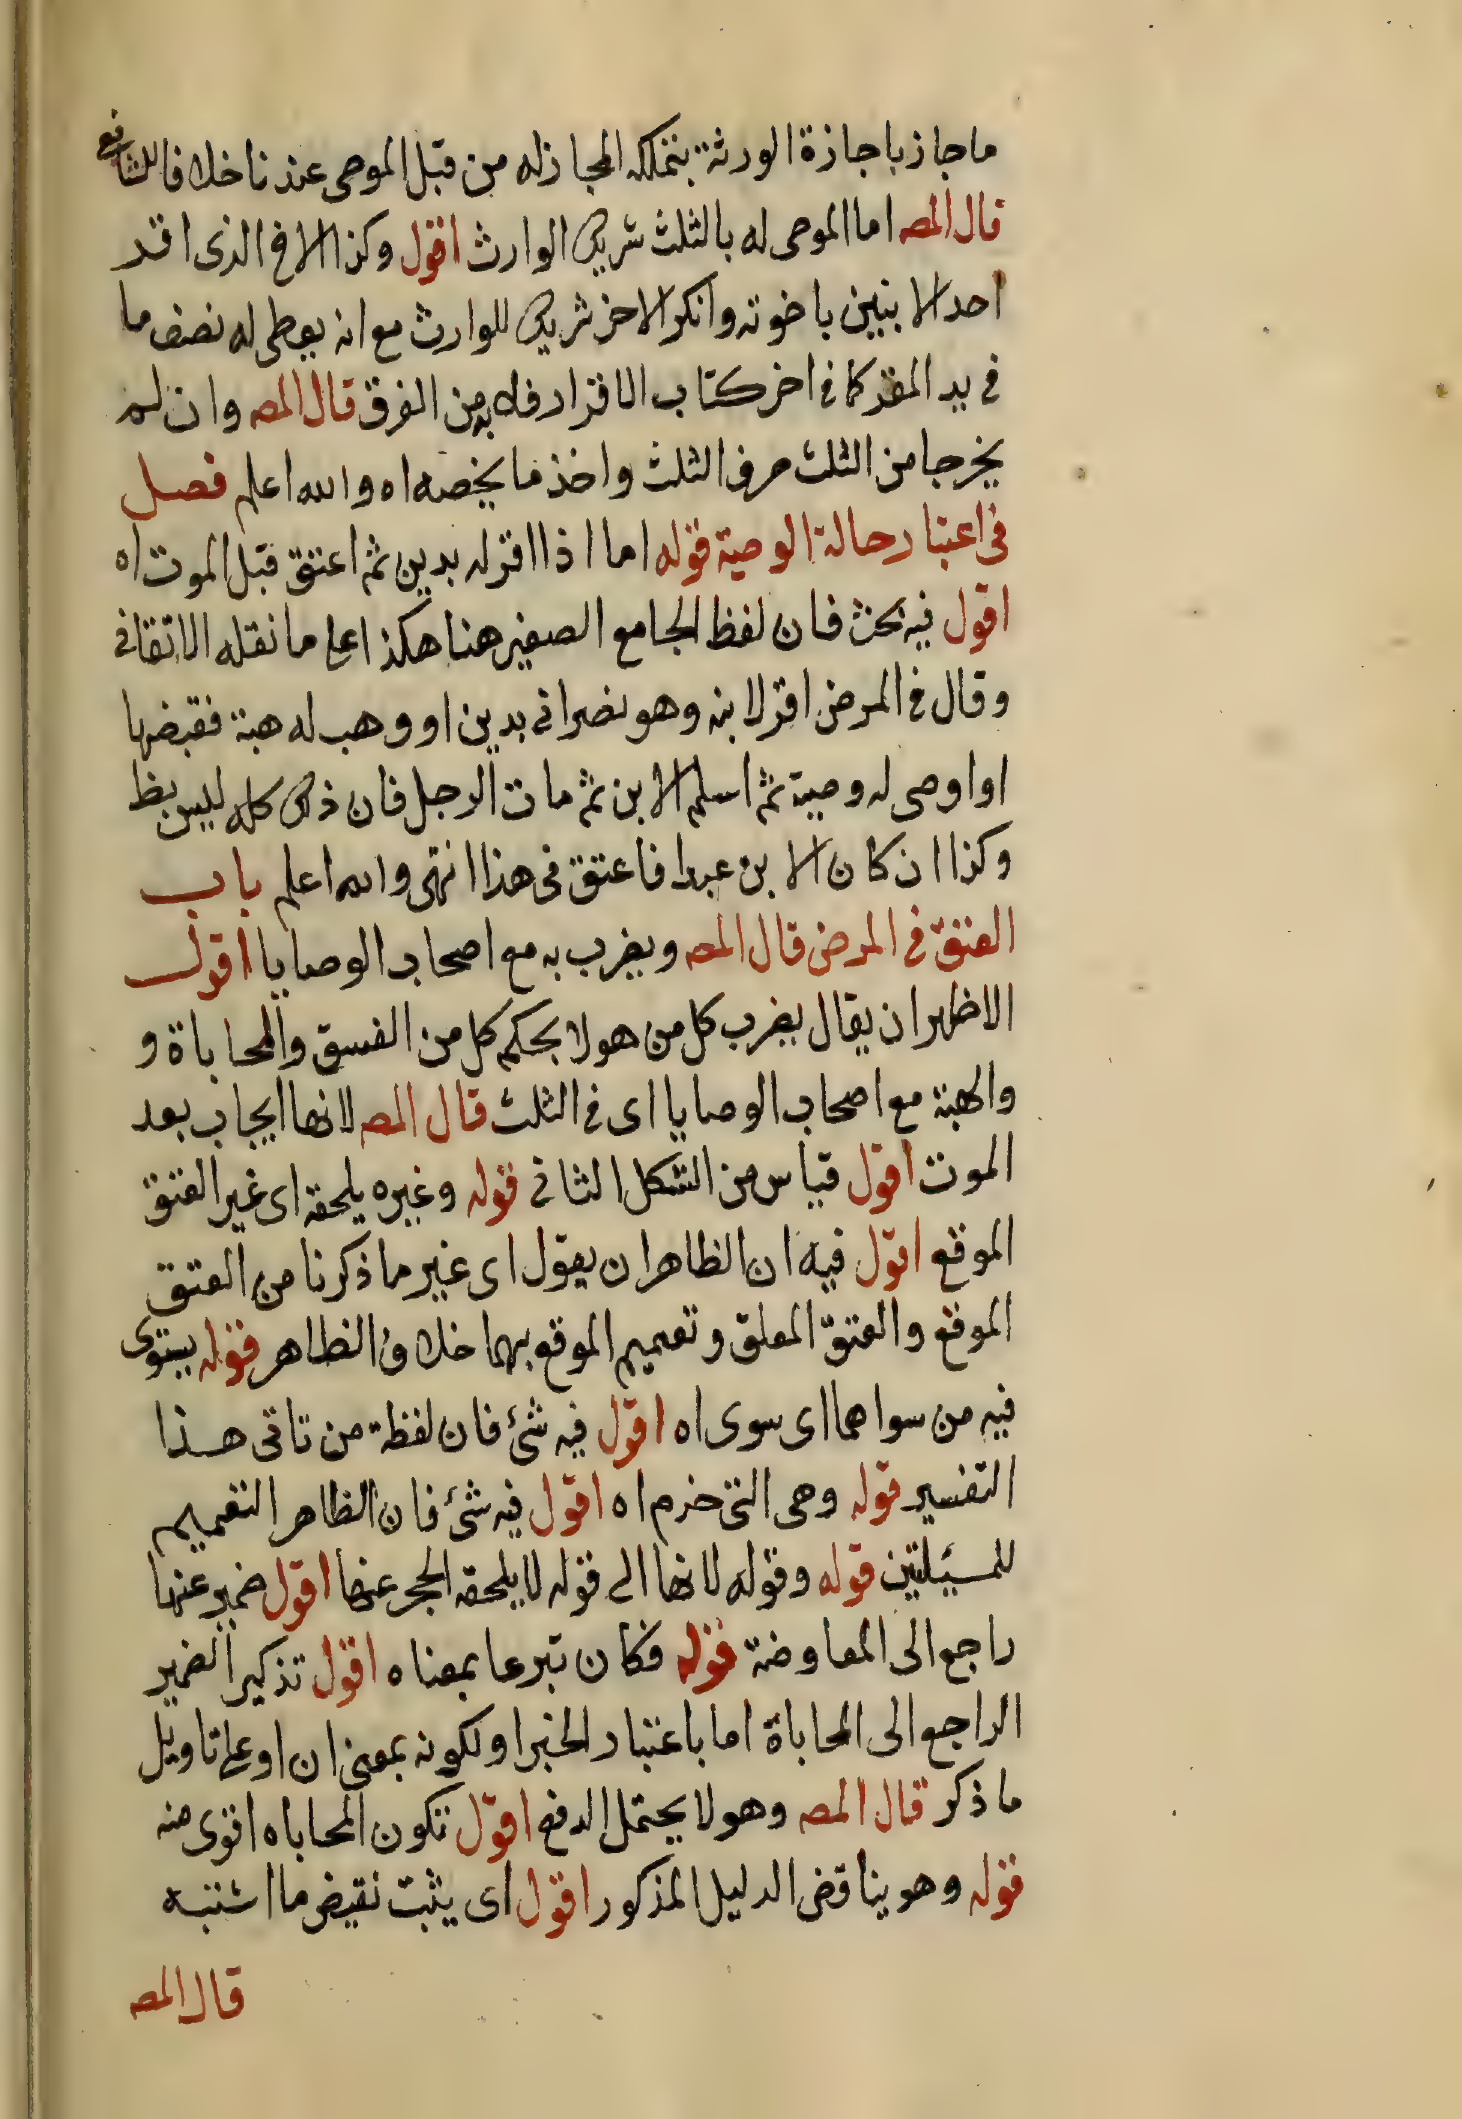 ماجاز باجازة الورثة بتملكه المجاز له من قبل الموصى عندنا خلافا للشافعى
قال المصـ اما الموصى له بالثلث شريك الوارث اقول وكذا الاخ الذى اقر
احد الابنين باخوته وانكر الاخر شريك للوارث مع انه يعطى له نصف ما
فى يد المقر كما فى اخر كتاب الاقرار فلا بد من الفرق قال المصـ وان لم
يخرجا من الثلث صرف الثلث واخذ ما يخصه اه والله اعلم فصل
فى اعتبار حالة الوصية قوله اما اذا اقر له بدين ثم اعتق قبل الموت اه
اقول فيه بحث فان لفظ الجامع الصغير هنا هكذا على ما نقله الاتقانى
وقال فى المرض اقر لابنه وهو نصرانى بدين او وهب له هبة فقبضها
او اوصى له وصية ثم اسلم الابن ثم مات الرجل فان ذلك كله ليس
وكذا ان كان الابن عبدا فاعتق فى هذا انتهى والله اعلم باب
العتق فى المرض قال المصـ ويضرب به مع اصحاب الوصايا اقول
الاظهر ان يقال يضرب كل من هولا بحكم كل من الفسق والمحاباة و
والهبة مع اصحاب الوصايا اى فى الثلث قال المصـ لانها ايجاب بعد
الموت اقول قياس من الشكل الثانى قوله وغيره يلحقه اى غير العتق
الموقع اقول فيه ان الظاهر ان يقول اى غير ما ذكرنا من العتق
الموقع والعتق المعلق وتعميم الموقع بهما خلاف الظاهر قوله يستوى
فيه من سواهما اى سوى اه اقول فيه شئ فان لفظة من تاتى هذا
التفسير قوله وهى التى خرم اه اقول فيه شئ فان الظاهر التعميم
للمسئلتين قوله وقوله لانها الى قوله لا يلحقه الحجر عنها اقول ضمير عنها
راجع الى المعاوضة قوله فكان تبرعا بمعناه اقول تذكير الضمير
الراجع الى المحاباة اما باعتبار الخبر او لكونه بمعنى ان او على تاويل
ما ذكر قال المصـ وهو لا يحتمل الدفع اقول تكون المحاباه اقوى منه
قوله وهو يناقض الدليل المذكور اقول اى يثبت نقيض ما اثبته
قال المصـ